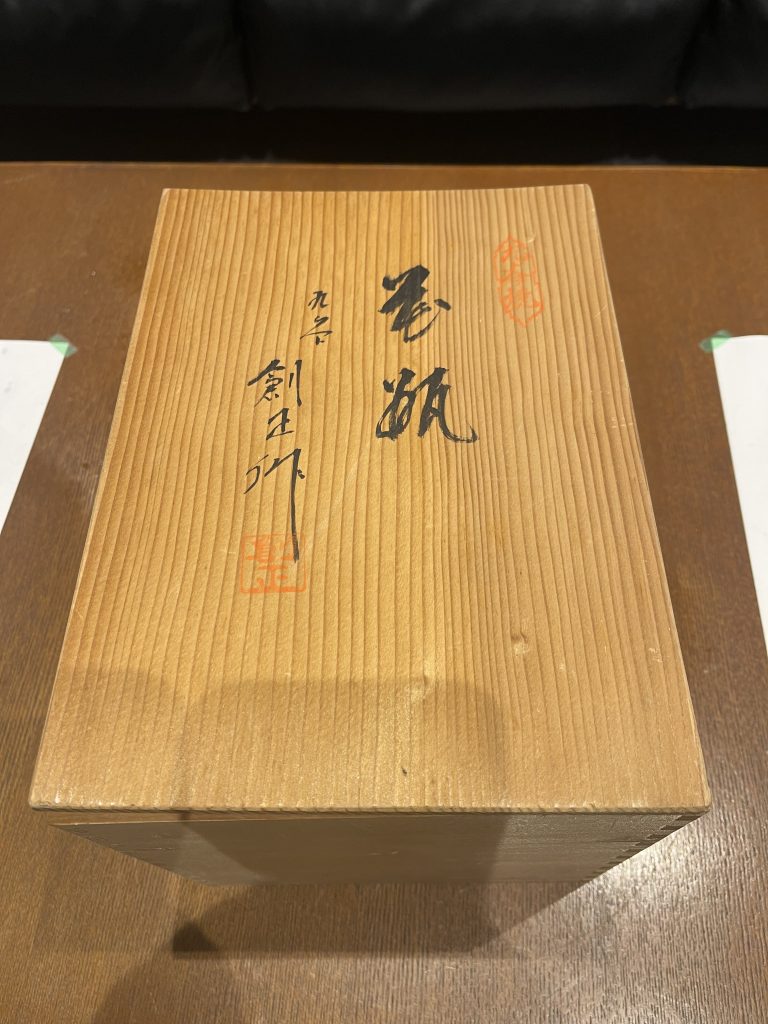 花瓶
九谷 創正作